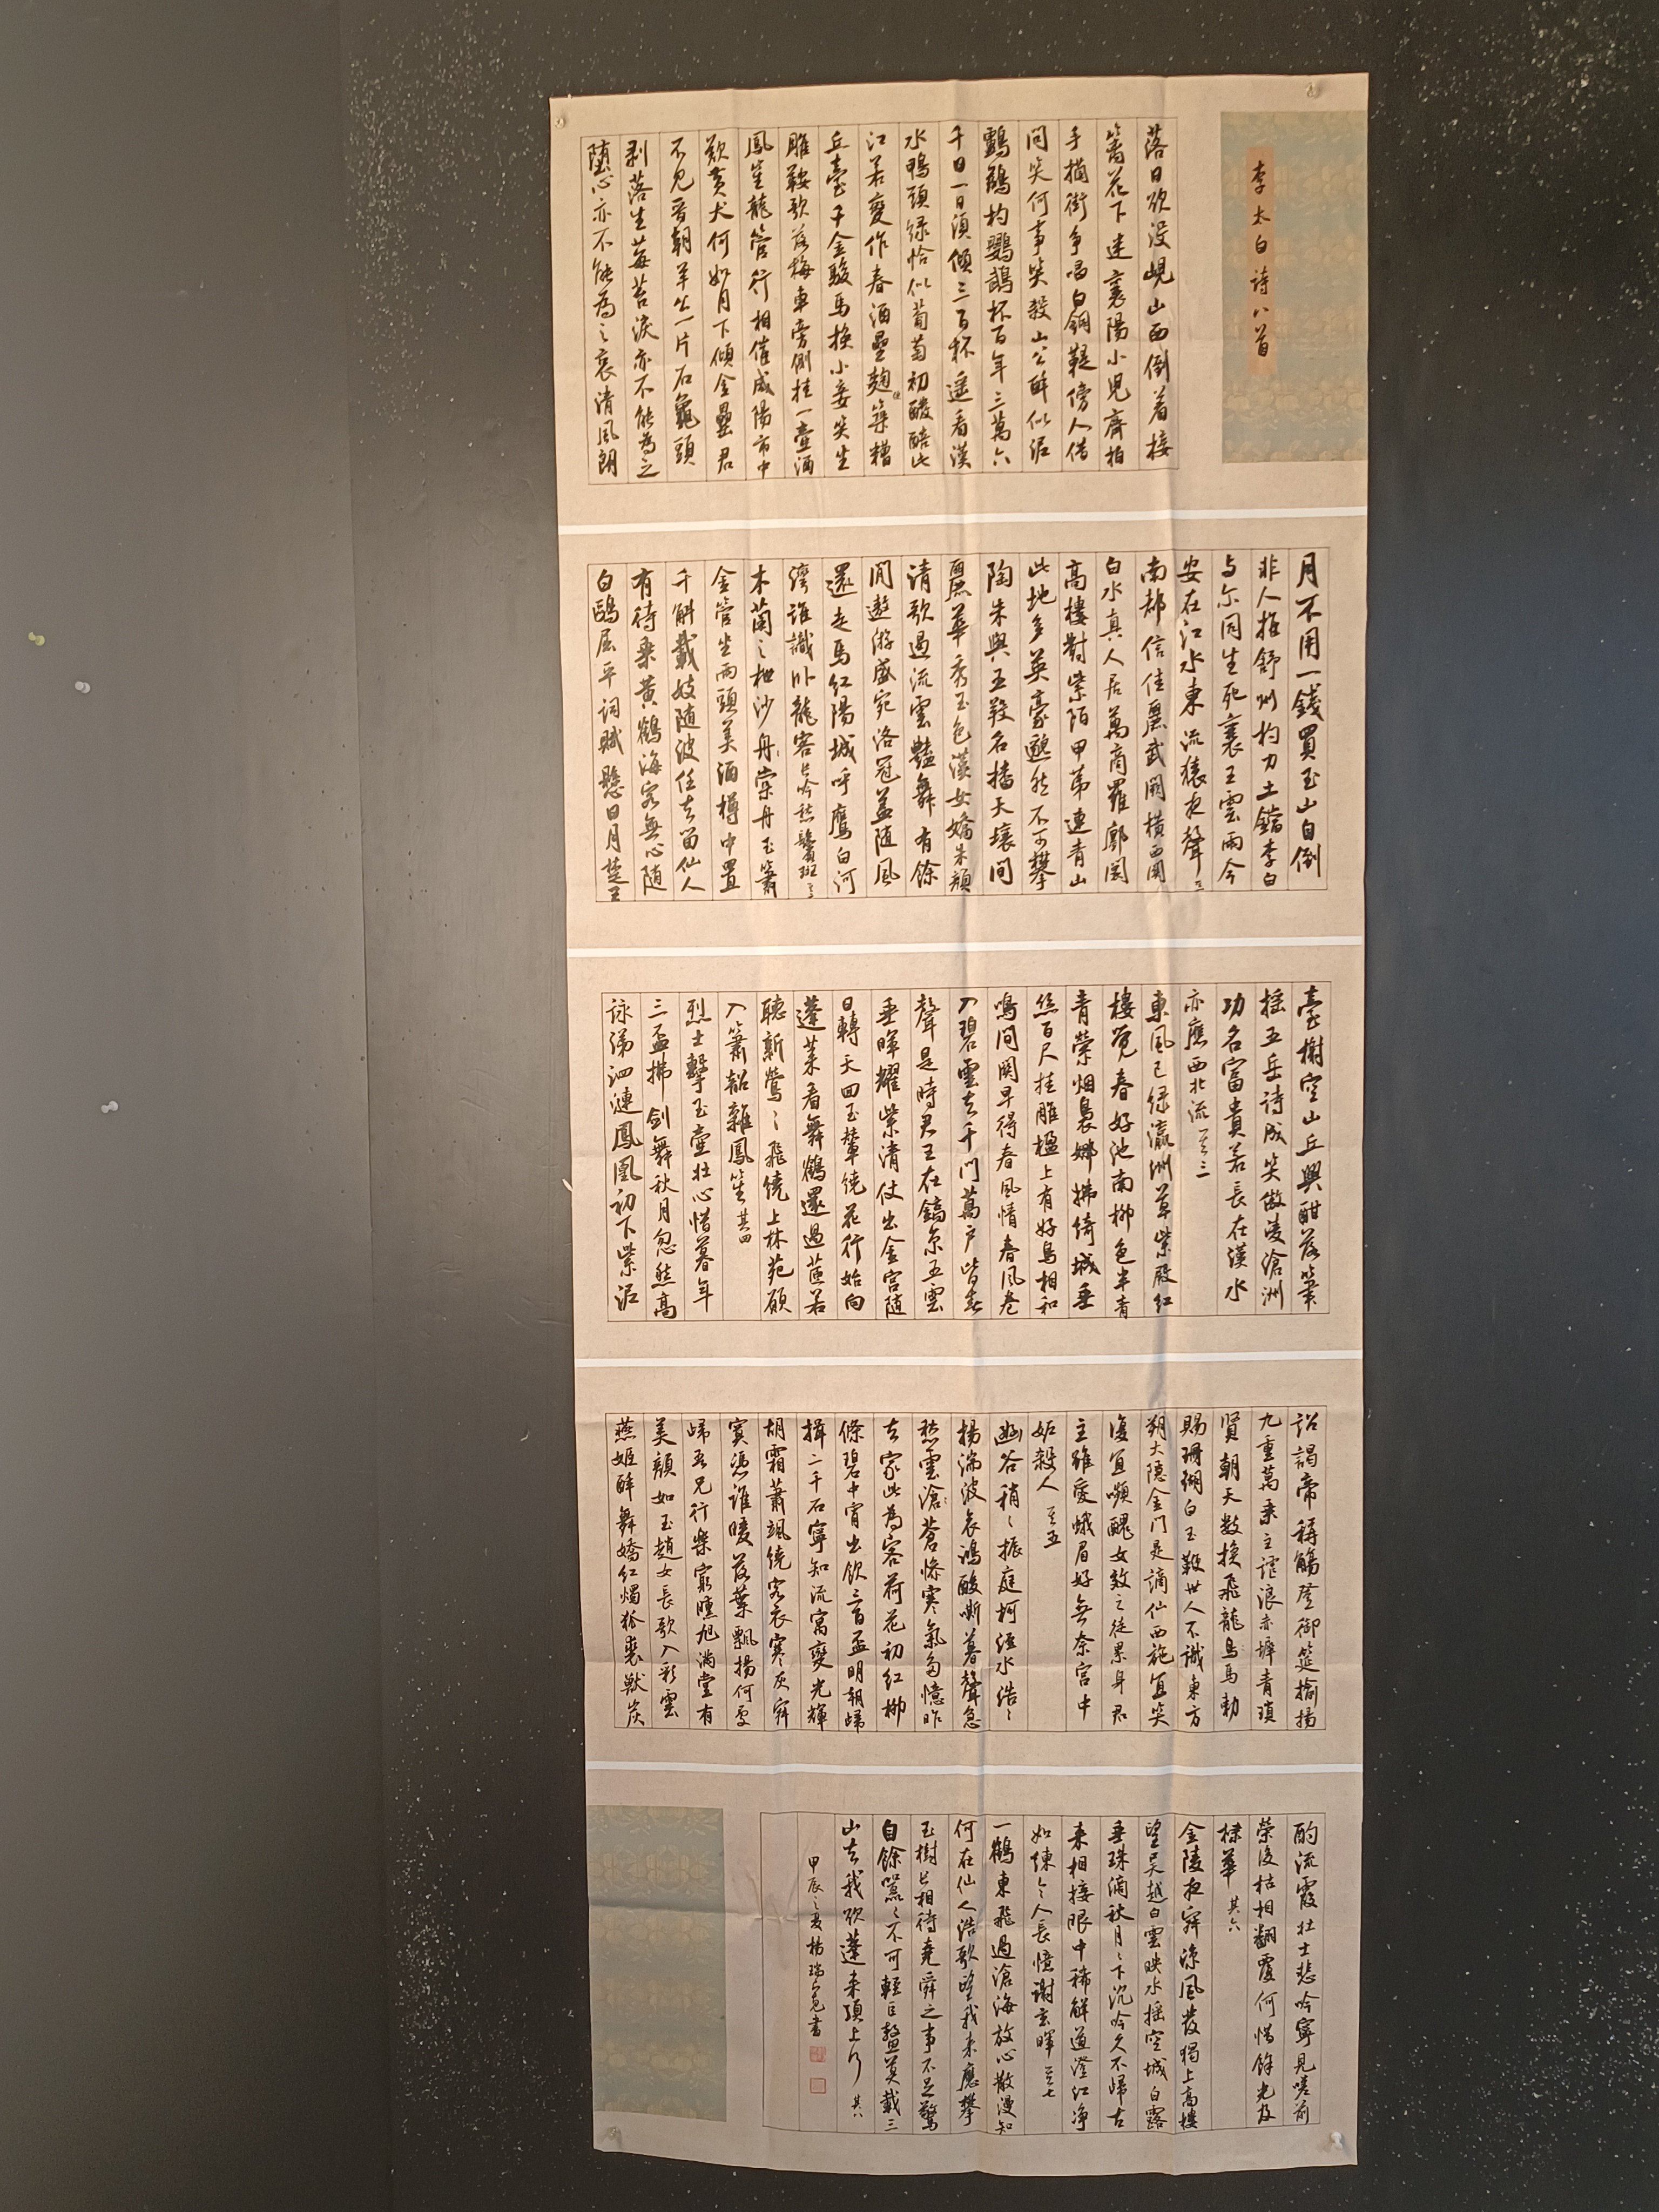 李太白詩八首
落日欲没峴山西倒着接
籬花下迷襄陽小兒齊拍
手攔街争唱白銅鞮傍人借
問笑何事笑殺山公醉似泥
鸕鶿杓鸚鵡杯百年三萬六
千日一日須傾三百杯遥看漢
水鴨頭緑恰似葡萄初醱醅此
江若變作春酒壘麴築糟
丘臺千金駿馬換小妾笑坐
雕鞍歌落梅車旁側挂一壺酒
鳳笙龍管行相催咸陽市中
歎黄犬何如月下傾金罍君
不見晉朝羊公一片石龜頭
剥落生莓苔淚亦不能為之
墮心亦不能為之哀清風朗
月不用一錢買玉山自倒
非人推舒州杓力士鐺李白
与尔同生死襄王雲雨今
安在江水東流猿夜聲
南都信佳麗武闕横西関
白水真人居萬商羅鄽闤
高樓對紫陌甲第連青山
此地多英豪邈然不可攀
陶朱與五羖名播天壤間
麗華秀玉色漢女嬌朱顔
清歌遏流雲豔舞有餘
閒遨游盛宛洛冠蓋随風
還走馬红陽城呼鷹白河
灣誰識卧龍客長吟愁鬢斑
木蘭之枻沙棠舟玉簫
金管坐兩頭美酒樽中置
千斛載妓随波任去留仙人
有待乘黄鶴海客無心随
白鷗屈平詞賦懸日月楚王
臺榭空山丘興酣落筆
摇五岳詩成笑傲凌滄洲
功名富貴若長在漢水
亦應西北流 其三
東風已緑瀛洲草紫殿红
樓覺春好池南柳色半青
青縈烟裊娜拂綺城垂
絲百尺挂雕楹上有好鳥相和
鳴間関早得春風情春風卷
入碧雲去千門萬户皆春
聲是時君王在鎬京五雲
垂暉耀紫清仗出金宫随
日轉天回玉輦繞花行始向
蓬莱看舞鶴還過茝若
聽新鶯鶯飛繞上林苑願
入簫韶雜鳳笙 其四
烈士擊玉壺壮心惜暮年
三盃拂剑舞秋月忽然高
詠涕泗漣鳳凰初下紫泥
詔謁帝稱觴登御筵揄揚
九重萬乘主謔浪赤墀青瑣
賢朝天数換飛龍馬勅
賜珊瑚白玉鞭世人不識東方
朔大隱金门是謫仙西施宜笑
復宜嚬醜女效之徒累身君
主雖愛蛾眉好無奈宫中
妬殺人 其五
幽谷稍稍振庭柯涇水浩浩
揚湍波哀鴻酸嘶暮聲急
愁雲滄蒼惨寒氣多憶昨
去家此為客荷花初红柳
條碧中宵出飲三百盃明朝歸
揖二千石寧知流寓變光輝
胡霜蕭飒繞客衣寒灰寂
寞憑誰暖落葉飄揚何處
歸吾兄行樂窮曛旭滿堂有
美顔如玉趙女長歌入彩雲
燕姬醉舞嬌红燭狐裘獸炭
酌流霞壮士悲吟寧見嗟前
榮後枯相翻覆何惜餘光及
棣華 其六
金陵夜寂凉風發獨上高樓
望吴越白雲映水摇空城白露
垂珠滴秋月月下沉吟久不歸古
来相接眼中稀解道澄江净
如練令人長憶謝玄暉 其七
一鶴東飛過滄海放心散漫知
何在仙人浩歌望我来應攀
玉樹長相待堯舜之事不足驚
自餘囂囂不可輕巨鼇莫載三
山去我欲蓬莱頂上行 其八
甲辰之夏楊瑞寬書